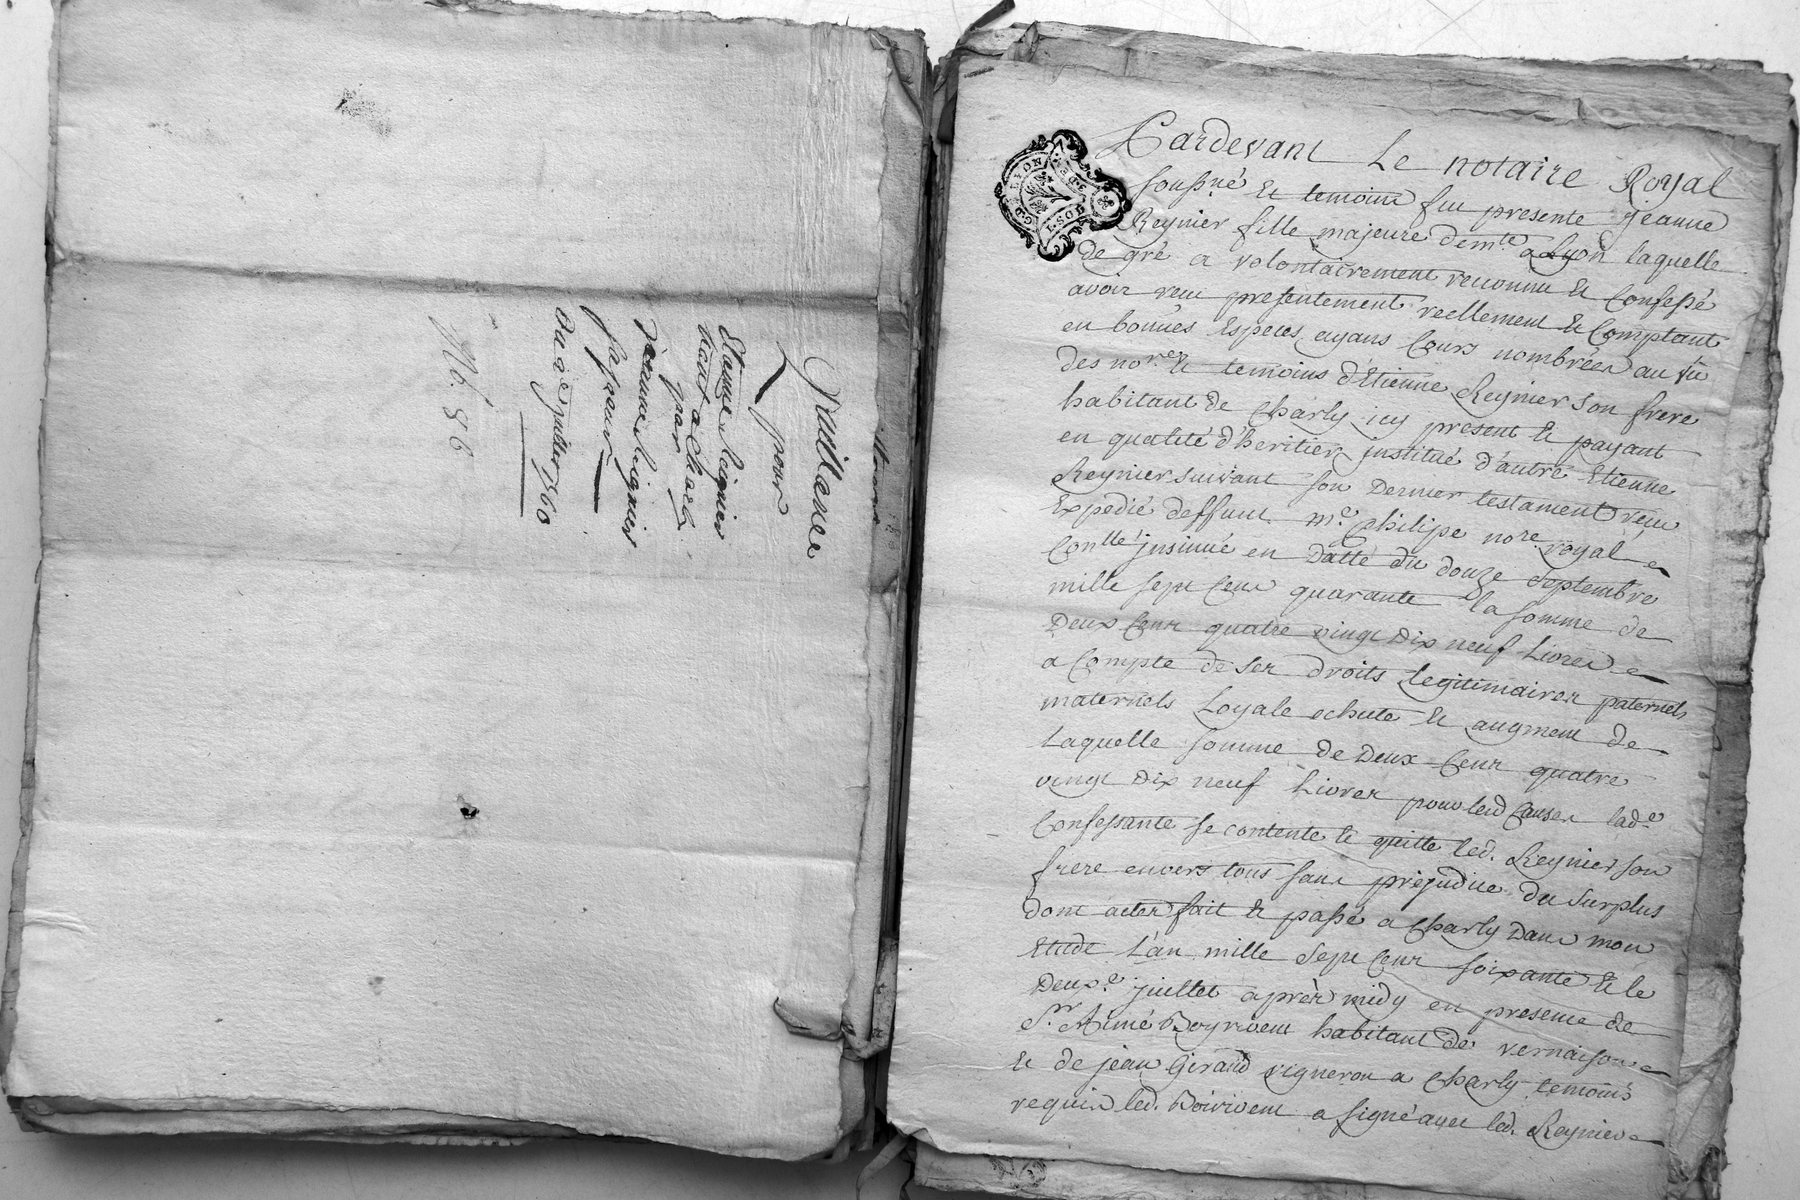 Quittance
pour
Etienne Reignier
habitant a Charly
par
Jeanne Reignier
sa soeur
Du 2e juillet 1760
No. 86
G.D. LYON
Pardevant Le notaire Royal
sousne. Et temoins fut presente jeanne
Reynier fille majeure demte a Lyon laquelle
de gré a volontairement reconnu Et Confessé
avoir recu presentement reellement Et Comptant
en bonnes Especes ayans Cours nombrées au vû
des nores Et temoins d'Etienne Reynier Son frere
habitant de Charly icy present Et payant
en qualité d'heritier jnstitué d'autre Etienne
Reynier suivant son Dernier testament recu
Expedié deffunt me. Philipe nore. royal
Conlle jnsinué en Datte du douze Septembre
mille sept Cent quarante la somme de
Deux Cent quatre vingt Dix neuf Livres
a Compte de ses droits Legitimaires paternels
maternels Loyale echute Et augment de
Laquelle somme de Deux Cent quatre
vingt Dix neuf Livres pour lesd Causes lade.
Confessante se contente Et quitte led. Reynier son
frere envers tous sans prejudice du Surplus
dont acter fait Et passé a Charly Dans mon
Etude L'an mille Sept Cent soixante Et le
Deuxe. juillet après midy en presence de
Sr. Aimé Boyrivent habitant de vernaison
Et de jean Giraud vigneron a Charly temoins
requis led. Boirivent a signé avec led. Reynier